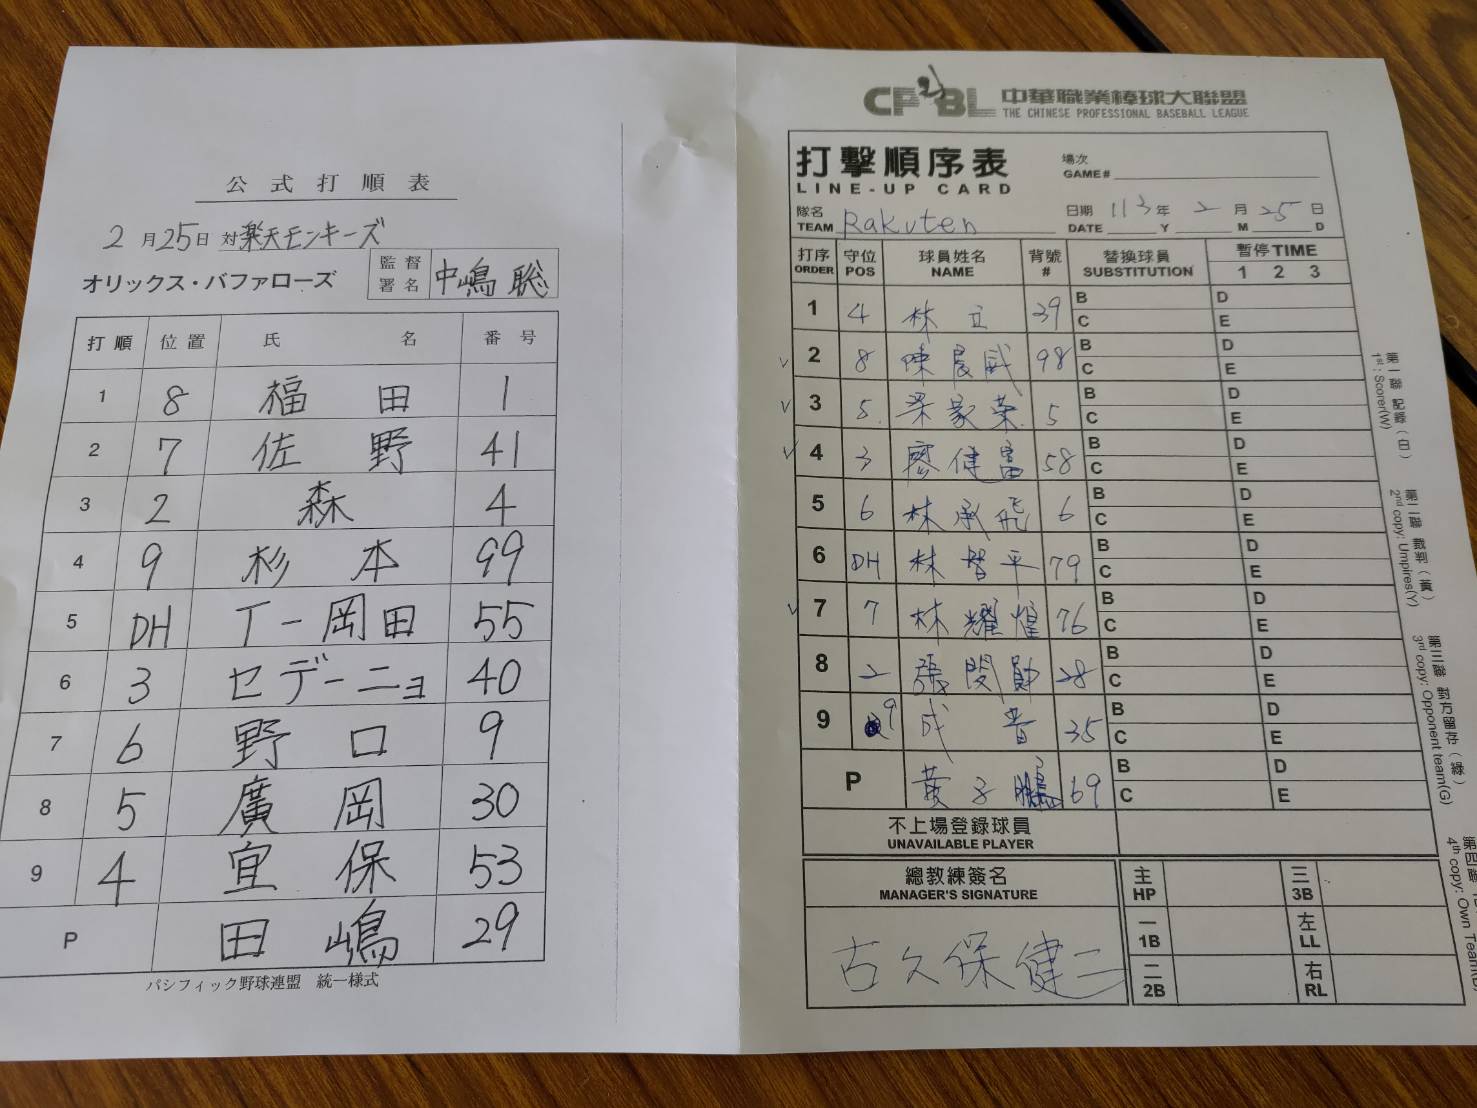 公式打順表
2月25日 対楽天モンキーズ
オリックス・バファローズ 監督署名 中嶋 聡
打順 位置 氏名 番号
1 8 福田 1
2 7 佐野 41
3 2 森 4
4 9 杉本 99
5 DH T-岡田 55
6 3 セデーニョ 40
7 6 野口 9
8 5 廣岡 30
9 4 宜保 53
P 田嶋 29
パシフィック野球連盟 統一様式
CPBL 中華職業棒球大聯盟
THE CHINESE PROFESSIONAL BASEBALL LEAGUE
打擊順序表 場次
LINE-UP CARD GAME#
隊名 日期 113年 2月25日
TEAM Rakuten DATE Y M D
打序 守位 球員姓名 背號 替換球員 暫停 TIME
ORDER POS NAME # SUBSTITUTION 1 2 3
1 4 林立 39 B D
C E
v 2 8 陳晨威 98 B D
C E
v 3 5 梁家榮 5 B D
C E
v 4 3 廖健富 58 B D
C E
5 6 林承飛 6 B D
C E
6 DH 林智平 79 B D
C E
v 7 7 林耀煌 76 B D
C E
8 2 張閔勛 28 B D
C E
9 9 成晉 35 B D
C E
P 黃子鵬 69 B D
C E
不上場登錄球員
UNAVAILABLE PLAYER
總教練簽名
MANAGER'S SIGNATURE
古久保健二
主 三
HP 3B
一 左
1B LL
二 右
2B RL
第一聯 記錄(白)
1st : Scorer(W)
第二聯 裁判(黃)
2nd copy: Umpires(Y)
第三聯 對方留存(綠)
3rd copy: Opponent team(G)
第四聯
4th copy: Own Team